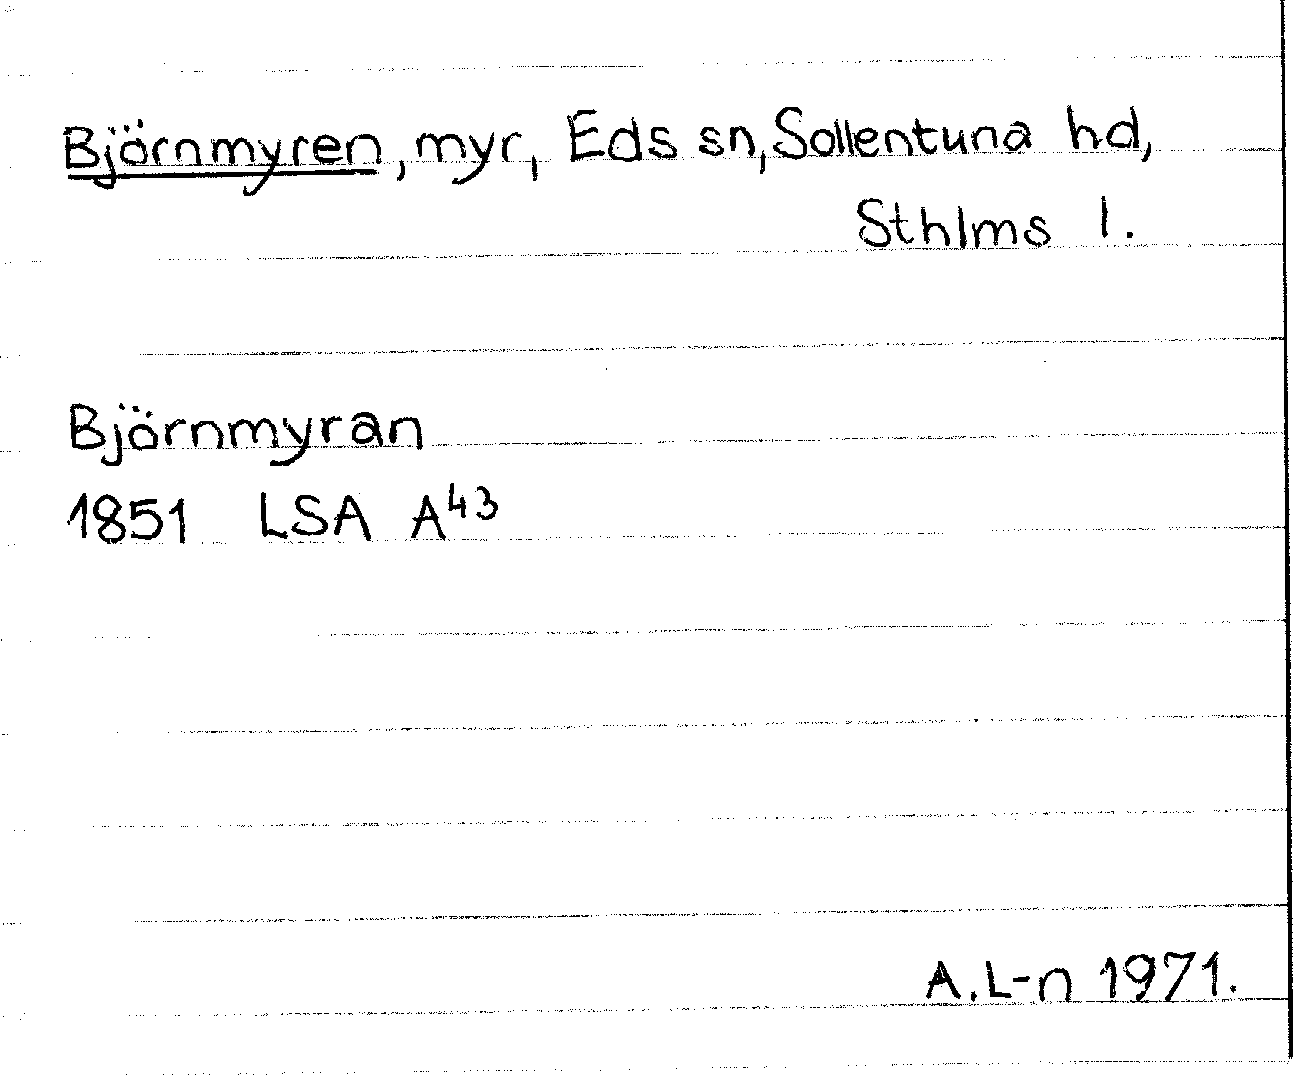 Björnmyren, myr, Eds sn, Sollentuna hd,
Sthlms l.
Björnmyran
1851 LSA A⁴³
A. L-n 1971.